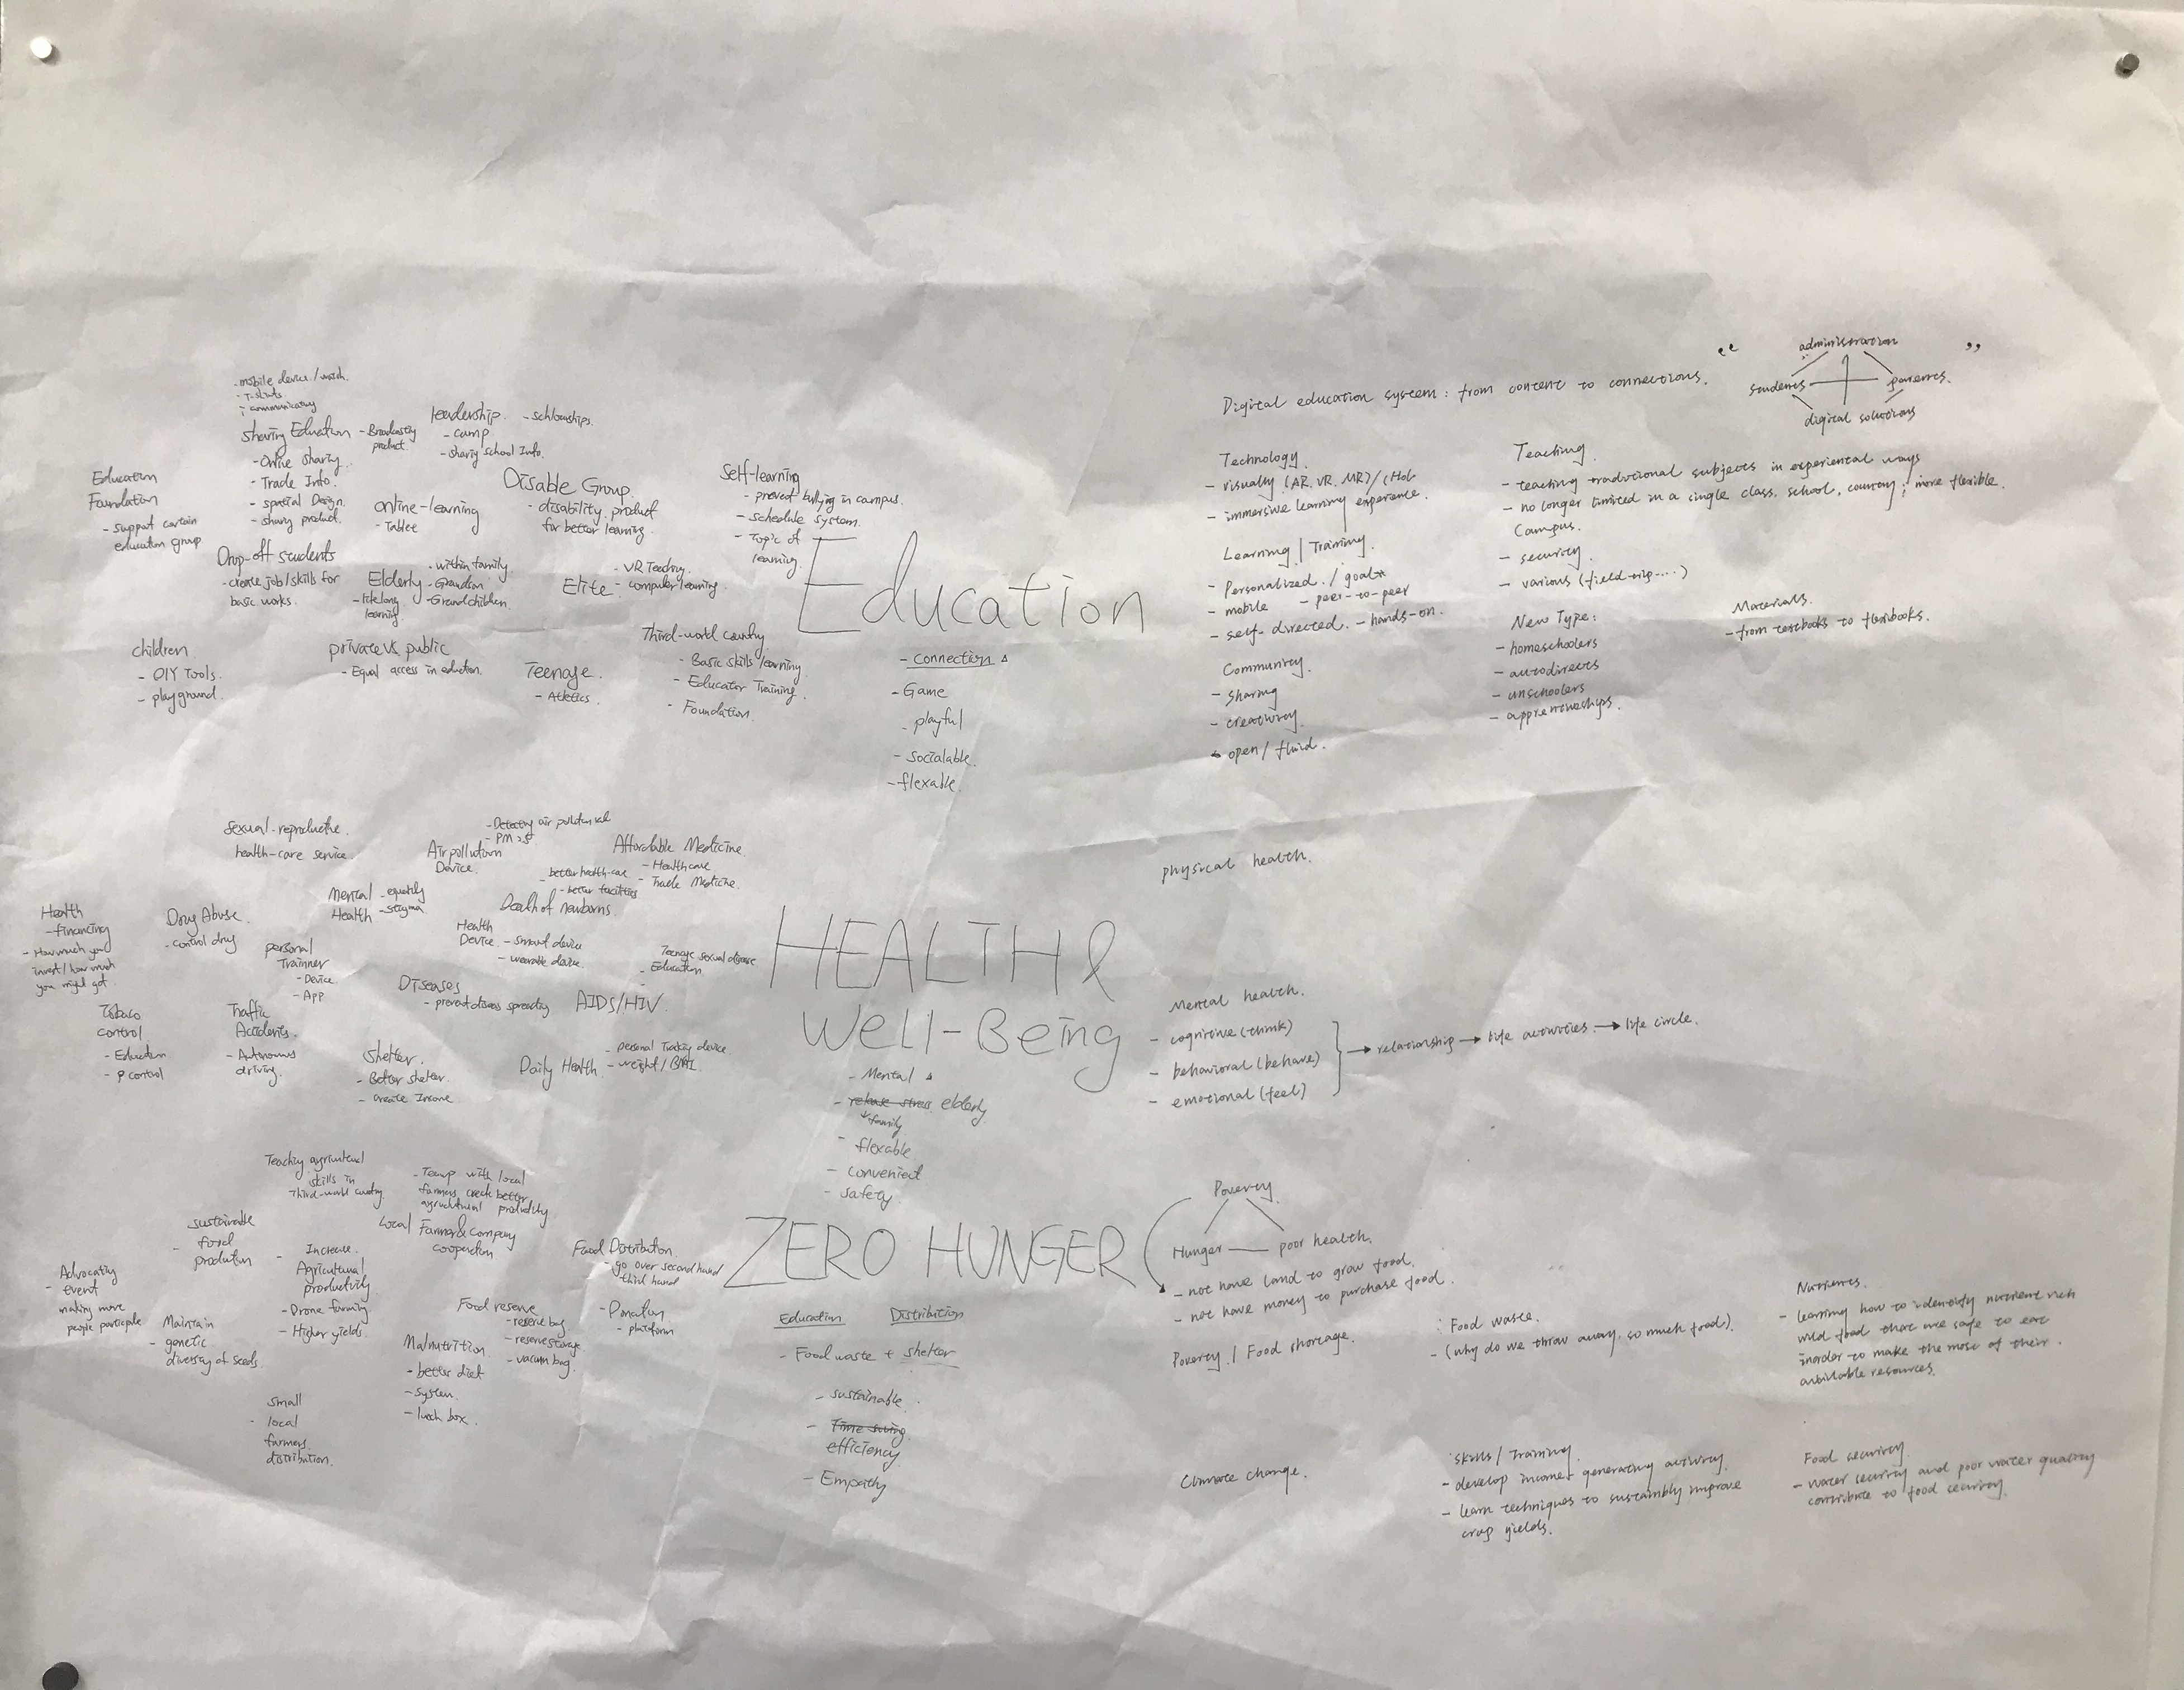 - mobile device / watch.
- T-shirts
sharing Education
- Online sharing.
- Trade Info.
- spatial Design.
- sharing product.
- Broadcasty
product.
leadership.
- camp
- sharing school Info.
- schlourships.
Education
Foundation
- support certain
education group
online-learning
- Tablet
Disable Group.
- disability product
for better learning.
Self-learning
- prevent bullying in campus.
- schedule system.
- Topic of
learning.
Drop-off students
- create job/skills for
basic works.
Elderly
- lifelong
learning
- within family
- Grandson
- Grandchildren
Elite
- VR Teaching.
- computer learning.
children
- DIY Tools.
- playground.
private vs public
- Equal access in eduction.
Teenage.
- Athletics.
Third-world country
- Basic skills learning
- Educator Training.
- Foundation.
Education
- Connection
- Game
- playful
- socialable.
- flexable.
Digital education system: from content to connections.
“ ”
administration
students
parents.
digital solutions
Technology.
- visually (AR, VR, MR)/
- immersive learning experience.
Learning | Training.
- Personalized. / goal
- mobile - peer-to-peer
- self-directed. - hands-on.
Community.
- sharing
- creativity.
- open / fluid.
Teaching.
- teaching traditional subjects in experiental ways
- no longer limited in a single class, school, country; more flexible.
Campus.
- security.
- various (field-trip....)
New Type:
- homeschoolers
- autodirects
- unschoolers
- apprenticeships.
Materials.
- from textbooks to flexibooks.
Sexual-reproductive
health-care service.
- Detecting air pollution
- PM 2.5
Air pollution
Device.
Affordable Medicine.
- Healthcare
- Trade Medicine.
- better health-care
- better facilities
Death of newborns.
Mental
Health
- equality
- stigma
Health
- financing
- How much you
invest / how much
you might get.
Drug Abuse.
- control drug
personal
Trainner
- Device
- App
Health
Device.
- smart device
- wearable device.
Teenage sexual disease
- Education
Diseases
- prevent disease spreading
AIDS/HIV
Tobaco
control
- Education
- control
Traffic
Accidents.
- Autonomus
driving.
shelter.
- Better shelter.
- create Income
Daily Health
- personal Tracking device
- weight / BMI.
HEALTH &
Well-Being
- Mental
- release stress elderly
family
- flexable
- convenient
- safety.
physical health.
Mental health.
- cognitive (think)
- behavioral (behave)
- emotional (feel)
→ relationship → life activities → life circle.
Teaching agricultural
skills in
Third-world country
- Teamup with local
farmers create better
agricultural productivity
Local Farmer & Company
cooperation
sustainable
food
production
Increase
Agricultural
productivity.
- Drone farming.
- Higher yields.
Advocating
- event
making more
people participate
Maintain
- genetic
diversity of seeds.
Food Distribution.
- go over second hand
third hand
Food reserve
- reserve bag
- reserve storage.
- vacuum bag.
- Donation
- platform
Malnutrition.
- better diet
- system.
- lunch box.
small
- local
farmers.
distribution.
ZERO HUNGER
Education Distribution
- Food waste + shelter
- sustainable
- Time saving
efficiency
- Empathy
Poverty
Hunger — poor health.
- not have land to grow food.
- not have money to purchase food.
Poverty / Food shortage.
Food waste.
- (why do we throw away so much food).
Nutrients.
- learning how to identify nutrient rich
wild food that are safe to eat
inorder to make the most of their
available resources.
Climate change.
skills / Training.
- develop income generating activity.
- learn techniques to sustainably improve
crop yields.
Food security.
- water security and poor water quality
contribute to food security.